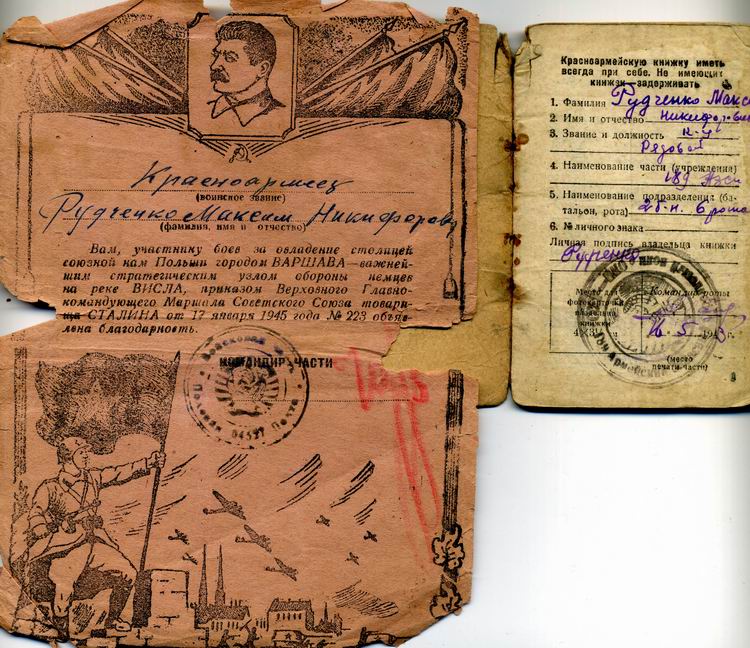 Красноармеец
(воинское звание)
Рудченко Максим Никифорович
(фамилия, имя и отчество)
Вам, участнику боев за овладение столицей
союзной нам Польши городом ВАРШАВА—важней-
шим стратегическим узлом обороны немцев
на реке ВИСЛА, приказом Верховного Главно-
командующего Маршала Советского Союза товари-
ща СТАЛИНА от 17 января 1945 года № 223 объя-
лена благодарность.
КОМАНДИР ЧАСТИ
Полевая Почта
04527
Красноармейскую книжку иметь
всегда при себе. Не имеющих
книжек—задерживать
1. Фамилия Рудченко Макс
2. Имя и отчество Никифорович
3. Звание и должность к-ц
Рядовой
4. Наименование части (учреждения)
189
5. Наименование подразделения (ба-
тальон, рота) 2 б-н. 6 рота
6. № личного знака
Личная подпись владельца книжки
Рудченко
Место для
фотокарточки
владельца
книжки
Командир роты
16.5 1943 г.
(место
печати части)